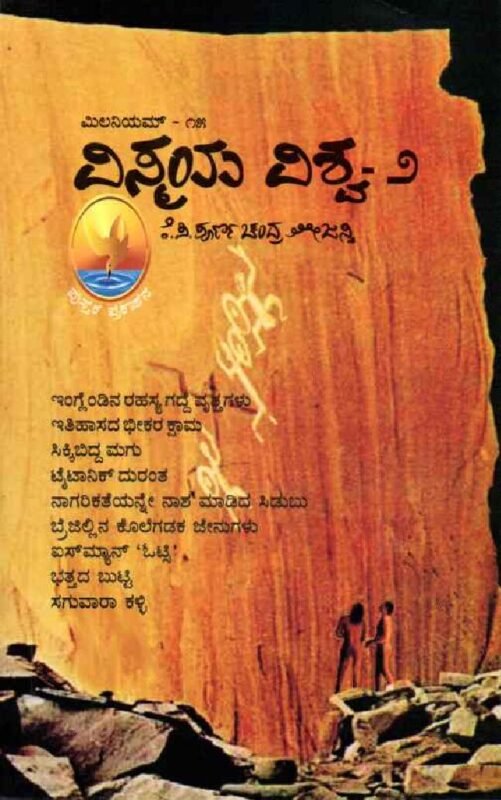 ಮಿಲನಿಯಮ್ - ೧೫
ವಿಸ್ಮಯ ವಿಶ್ವ - ೨
ಕೆ.ಪಿ.ಪೂರ್ಣಚಂದ್ರ ತೇಜಸ್ವಿ
ಪುಸ್ತಕ ಪ್ರಕಾಶನ
ಇಂಗ್ಲೆಂಡಿನ ರಹಸ್ಯ ಗದ್ದೆ ವೃತ್ತಗಳು
ಇತಿಹಾಸದ ಭೀಕರ ಕ್ಷಾಮ
ಸಿಕ್ಕಿಬಿದ್ದ ಮಗು
ಟೈಟಾನಿಕ್ ದುರಂತ
ನಾಗರಿಕತೆಯನ್ನೇ ನಾಶ ಮಾಡಿದ ಸಿಡುಬು
ಬ್ರೆಜಿಲ್ಲಿನ ಕೊಲೆಗಡಕ ಜೇನುಗಳು
ಐಸ್‌ಮ್ಯಾನ್ 'ಓಟ್ಸಿ'
ಭತ್ತದ ಬುಟ್ಟಿ
ಸಗುವಾರಾ ಕಳ್ಳಿ